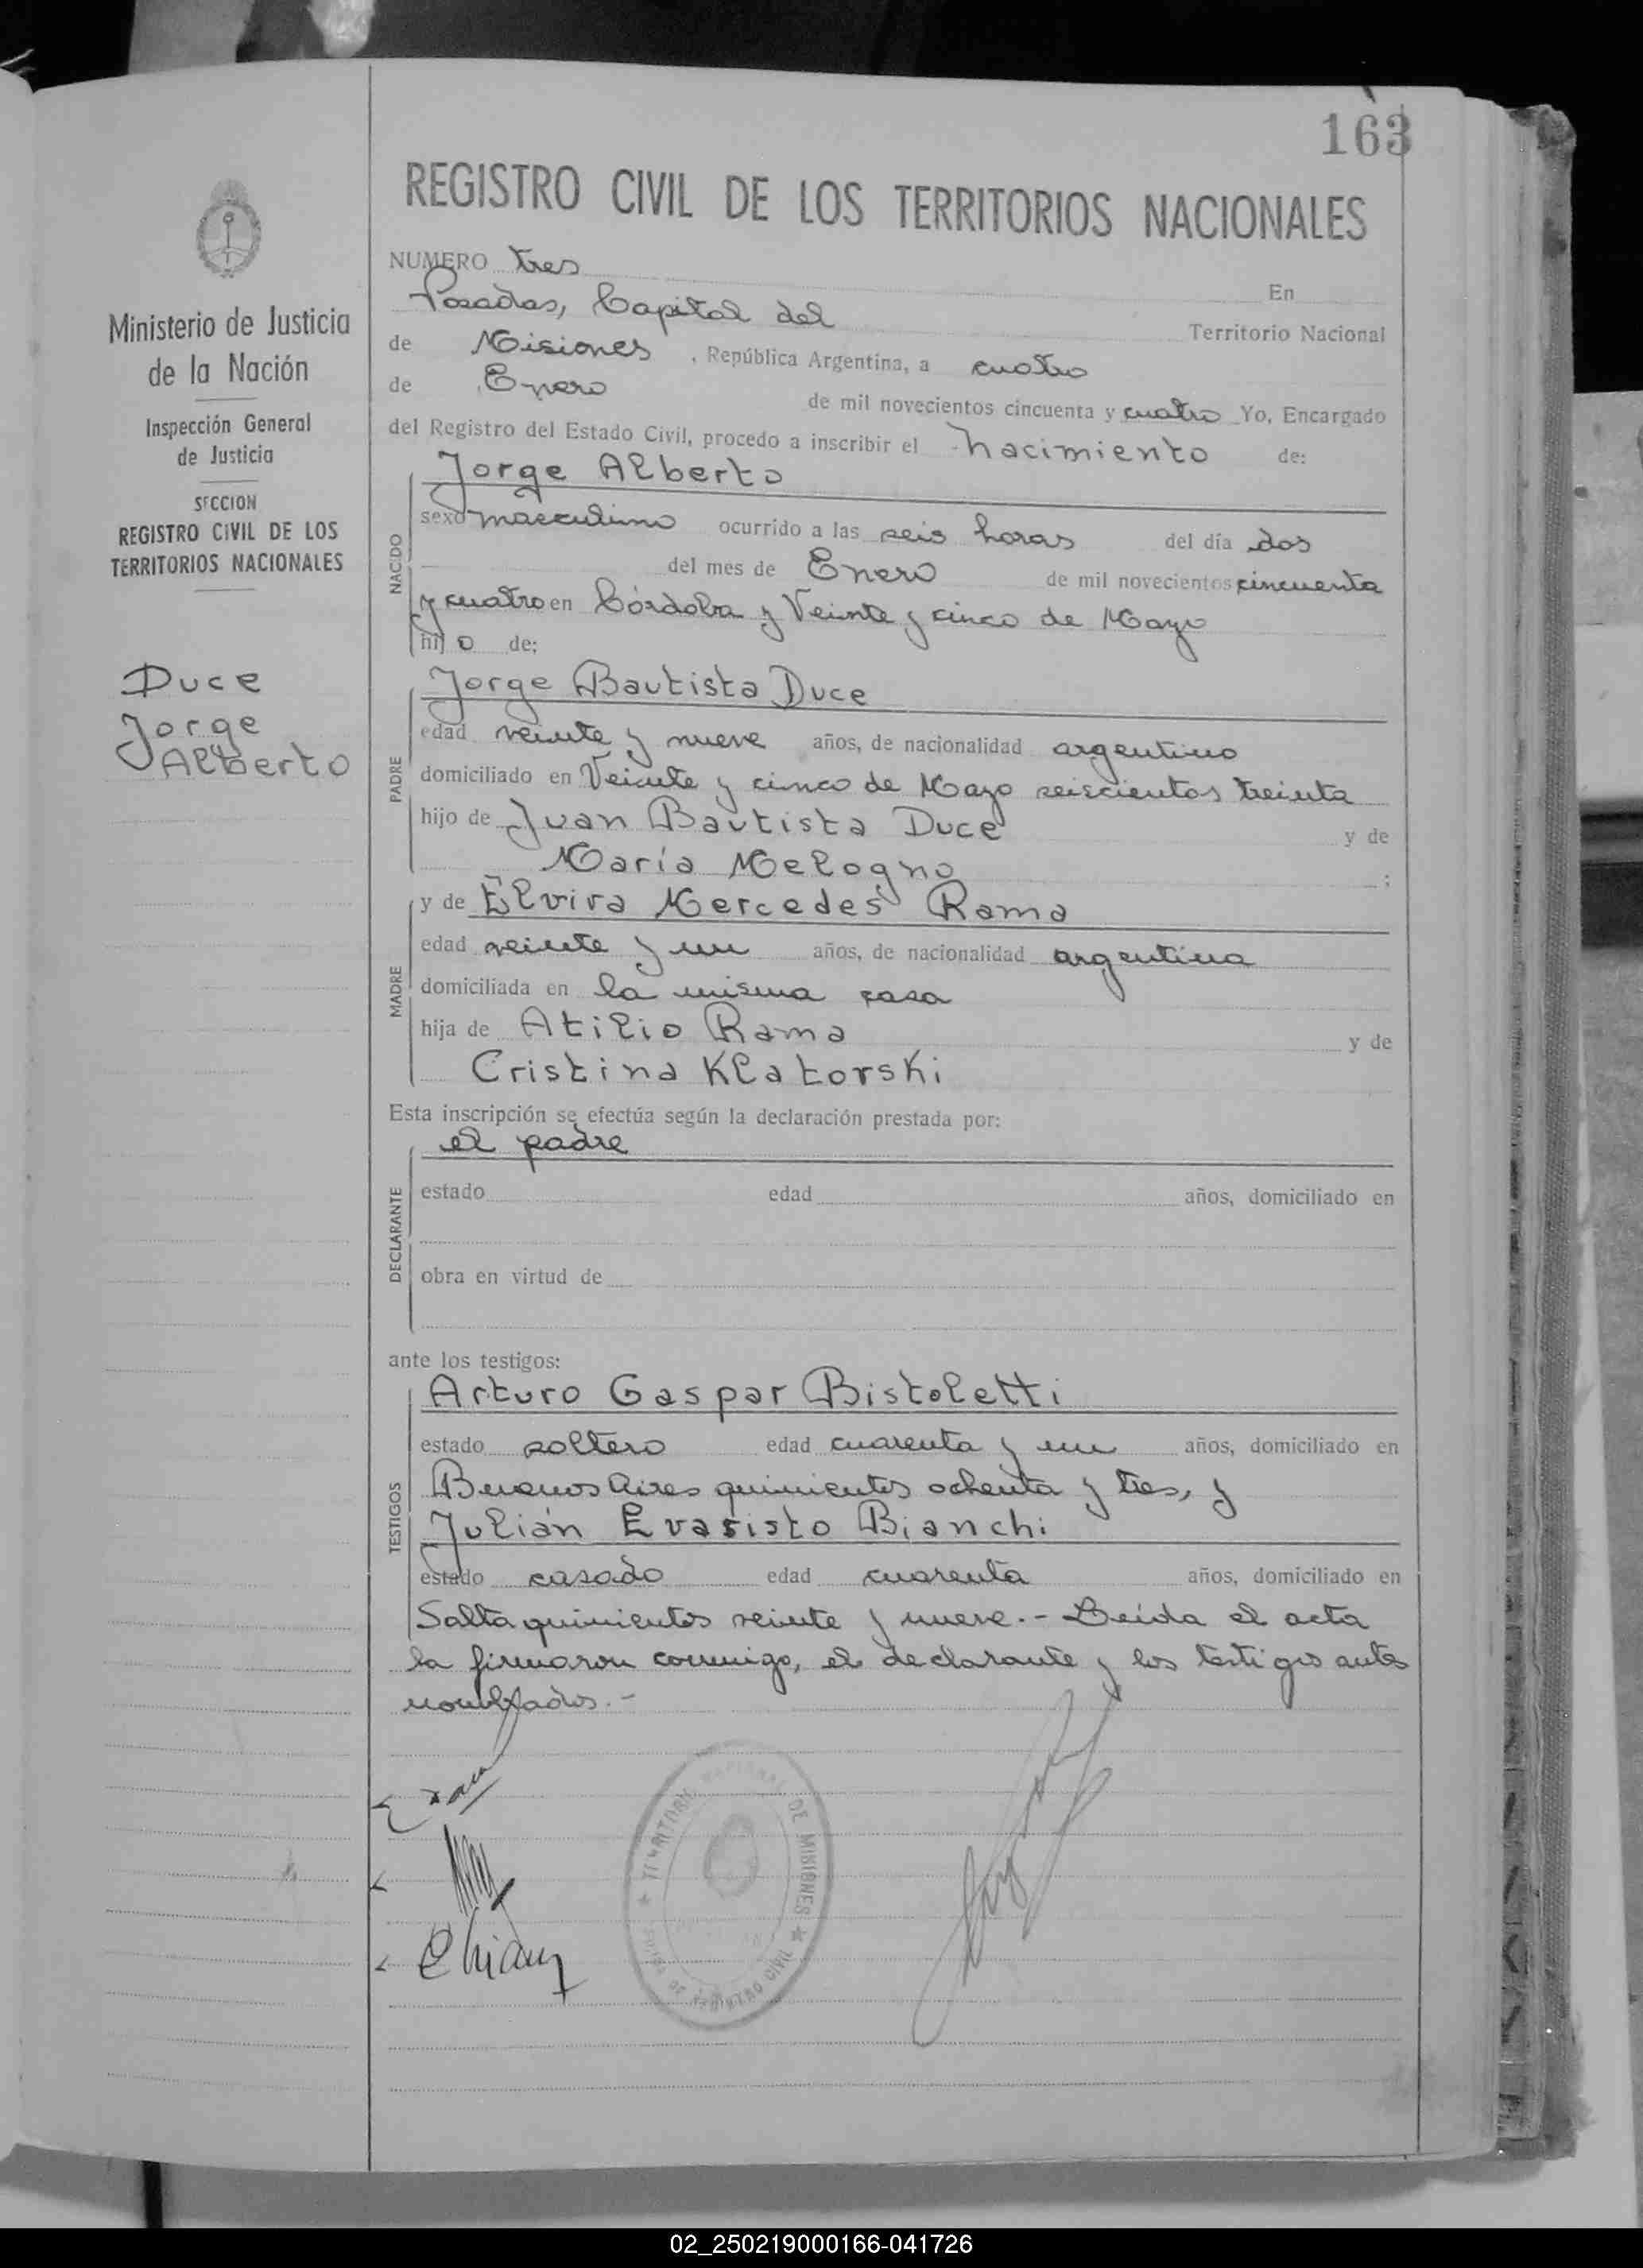 163
REGISTRO CIVIL DE LOS TERRITORIOS NACIONALES
Ministerio de Justicia
de la Nación
Inspección General
de Justicia
SECCION
REGISTRO CIVIL DE LOS
TERRITORIOS NACIONALES
Duce
Jorge
Alberto
NUMERO tres
En
Posadas, Capital del Territorio Nacional
de Misiones, República Argentina, a cuatro
de Enero de mil novecientos cincuenta y cuatro Yo, Encargado
del Registro del Estado Civil, procedo a inscribir el nacimiento de:
NACIDO
Jorge Alberto
sexo masculino ocurrido a las seis horas del día dos
del mes de Enero de mil novecientos cincuenta
y cuatro en Córdoba y Veinte y cinco de Mayo
hijo de:
PADRE
Jorge Bautista Duce
edad veinte y nueve años, de nacionalidad argentino
domiciliado en Veinte y cinco de Mayo seiscientos treinta
hijo de Juan Bautista Duce y de
María Melogno ;
MADRE
y de Elvira Mercedes Rama
edad veinte y un años, de nacionalidad argentina
domiciliada en la misma casa
hija de Atilio Rama y de
Cristina Klatorski
Esta inscripción se efectúa según la declaración prestada por:
DECLARANTE
el padre
estado edad años, domiciliado en
obra en virtud de
ante los testigos:
TESTIGOS
Arturo Gaspar Bistoletti
estado soltero edad cuarenta y un años, domiciliado en
Buenos Aires quinientos ochenta y tres, y
Julián Evaristo Bianchi
estado casado edad cuarenta años, domiciliado en
Salta quinientos veinte y nueve.- Leída el acta
la firmaron conmigo, el declarante y los testigos antes
nombrados.-
TERRITORIO NACIONAL DE MISIONES
REGISTRO CIVIL
02_250219000166-041726